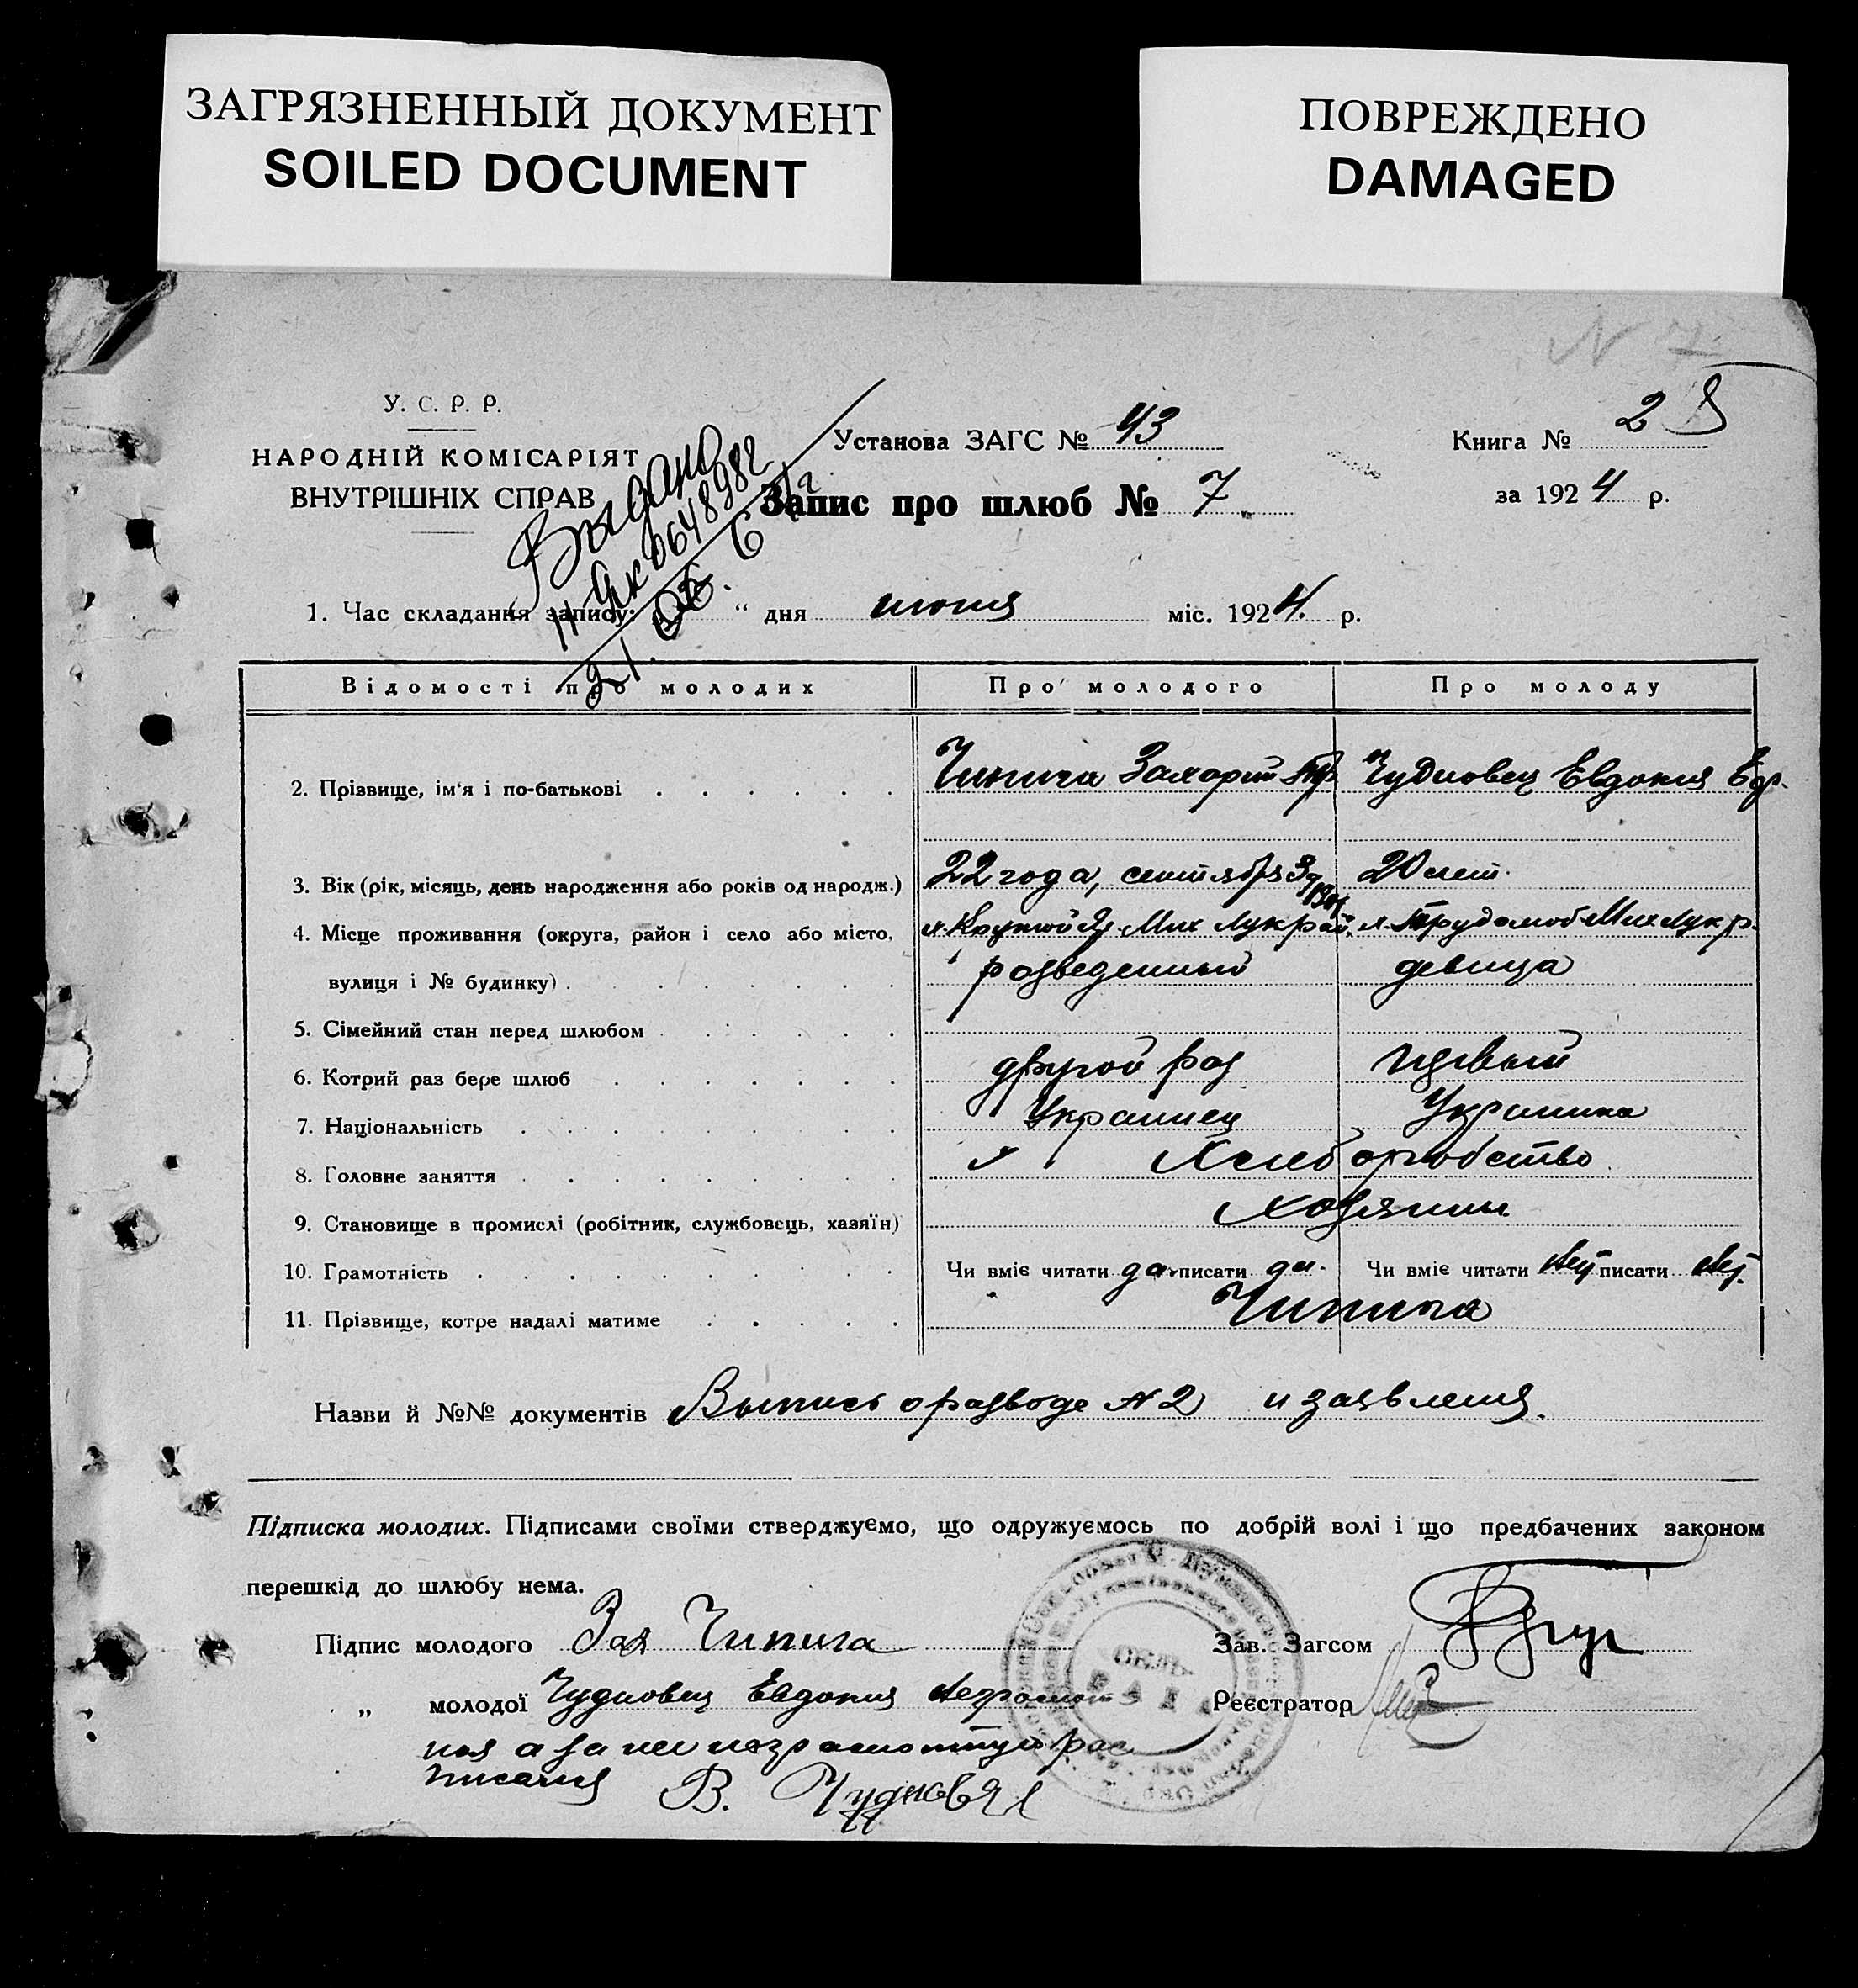 ЗАГРЯЗНЕННЫЙ ДОКУМЕНТ
SOILED DOCUMENT
ПОВРЕЖДЕНО
DAMAGED
N 7.
У. С. Р. Р.
НАРОДНІЙ КОМІСАРІЯТ
ВНУТРІШНІХ СПРАВ
Выдано
Установа ЗАГС № 43
Книга № 2
Запис про шлюб № 7
за 1924 р.
1. Час складання запису: “ дня июня міс. 1924. р.
Відомості про молодих Про молодого Про молоду
2. Прізвище, ім'я і по-батькові Чипига Захарий Чудновец Евдокия
3. Вік (рік, місяць, день народження або років од народж.) 22 года, сентября 20 лет.
4. Місце проживання (округа, район і село або місто, Мих Лукр
вулиця і № будинку) разведенный девица
5. Сімейний стан перед шлюбом
6. Котрий раз бере шлюб другой раз первый
7. Національність Украинец Украинка
8. Головне заняття Хлеборобство
9. Становище в промислі (робітник, службовець, хазяїн) хозяины
10. Грамотність Чи вміє читати да писати да. Чи вміє читати нет писати нет.
11. Прізвище, котре надалі матиме Чипига
Назви й №№ документів Выпись о разводе N 2 и заявления.
Підписка молодих. Підписами своїми стверджуємо, що одружуємось по добрій волі і що предбачених законом
перешкід до шлюбу нема.
Підпис молодого Зах Чипига Зав. Загсом
„ молодої Чудновец Евдокия неграмот Реєстратор
ная а за нее неграмотную рас
писался В. Чудновец